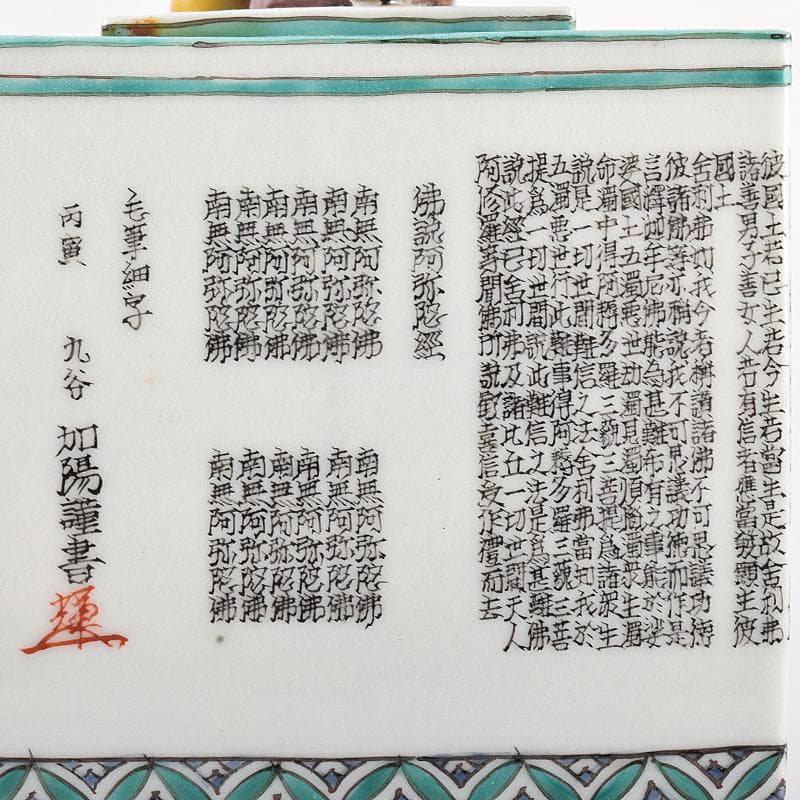 彼國土若已生若今生若當生是故舍利弗
諸善男子善女人若有信者應當發願生彼
國土
舍利弗如我今者稱讚諸佛不可思議功德
彼諸佛等亦稱說我不可思議功德而作是
言釋迦牟尼佛能為甚難希有之事能於娑
婆國土五濁惡世劫濁見濁煩惱濁衆生濁
命濁中得阿耨多羅三藐三菩提爲諸衆生
說是一切世間難信之法舍利弗當知我於
五濁惡世行此難事得阿耨多羅三藐三菩
提爲一切世間說此難信之法是爲甚難佛
說此經已舍利弗及諸比丘一切世間天人
阿修羅等聞佛所說歡喜信受作禮而去
佛說阿弥陀經
南無阿弥陀佛
南無阿弥陀佛
南無阿弥陀佛
南無阿弥陀佛
南無阿弥陀佛
南無阿弥陀佛
南無阿弥陀佛
南無阿弥陀佛
南無阿弥陀佛
南無阿弥陀佛
南無阿弥陀佛
南無阿弥陀佛
毛筆細字
丙寅 九谷 加陽謹書 輝